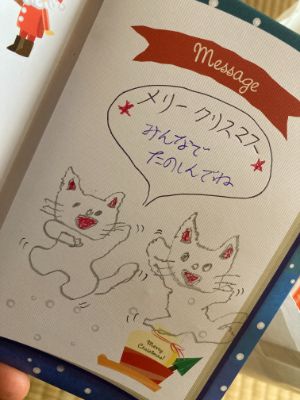 Message
メリークリスマス
みんなで
たのしんでね
Merry
Christmas!